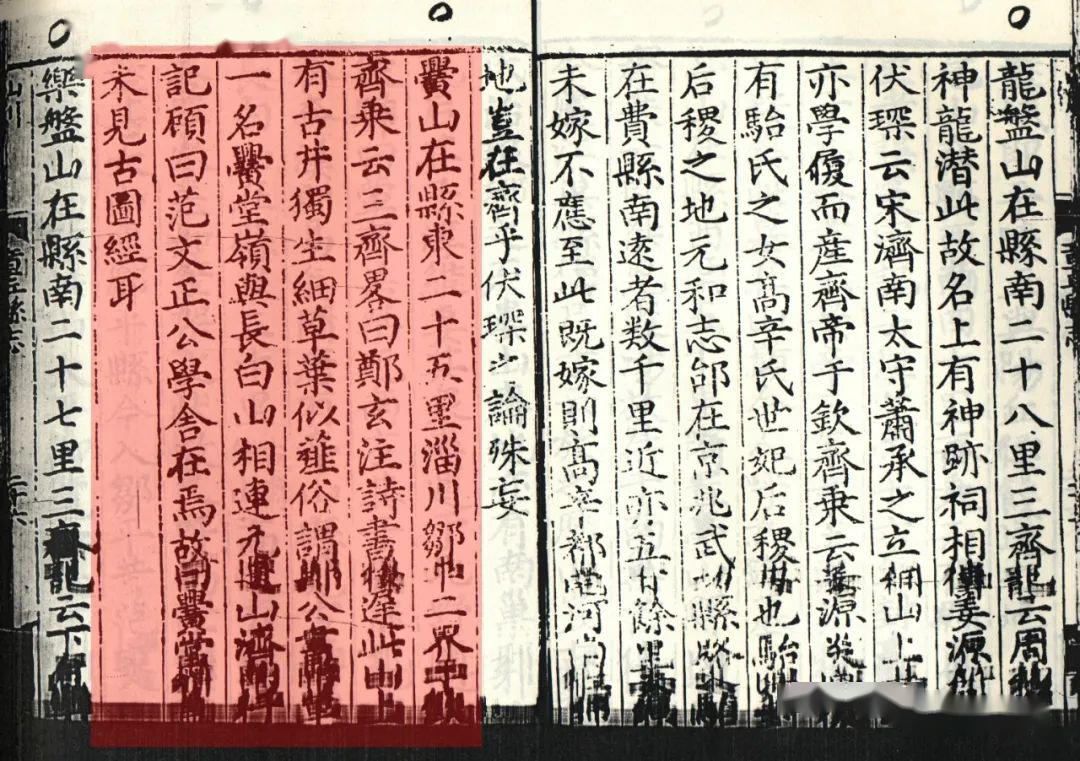 龍盤山在縣南二十八里三齊龍云周
神龍潛此故名上有神跡祠相傳姜源
伏琛云宋濟南太守蕭承之立祠山上
亦學履而産齊帝于欽齊乗云姜源
有駘氏之女高辛氏世妃后稷母也駘
后稷之地元和志邰在京兆武功縣
在費縣南遠者数千里近亦五百餘里
未嫁不應至此既嫁則高辛都
地豈在齊乎伏琛之論殊妄
黌山在縣東二十五里淄川鄒平二界
齊乗云三齊畧曰鄭玄注詩書棲遲此山上
有古井獨生細草葉似薤俗謂鄭公書
一名黌堂嶺與長白山相連元遺山濟南
記顧曰范文正公學舍在焉故曰黌堂
未見古圖經耳
欒盤山在縣南二十七里三齊龍云下有